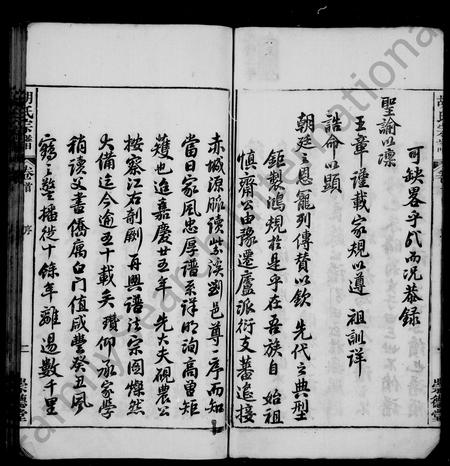 胡氏宗譜
卷首
可缺畧乎哉而況恭錄
聖諭以凛
王章謹載家規以遵 祖訓詳
誥命以顯
朝廷之恩寵列傳贊以欽 先代之典型
鉅製鴻規於是乎在吾族自 始祖
慎齋公由豫遷廬派衍支蕃遙接
崇德堂
胡氏宗譜
卷首
序
赤城源脈讀紫溪劉邑尊之序而知
當日家風忠厚譜系詳明洵高曾矩
矱也迨嘉慶廿五年 先大夫硯農公
按察江右剞劂 再興譜法宗圖燦然
大備迄今逾五十載矣 瓚仰承家學
稍讀父書僑寓白門值咸豐癸丑風
鶴之警播遷十餘年離湯數千里
崇德堂
FamilySearch International